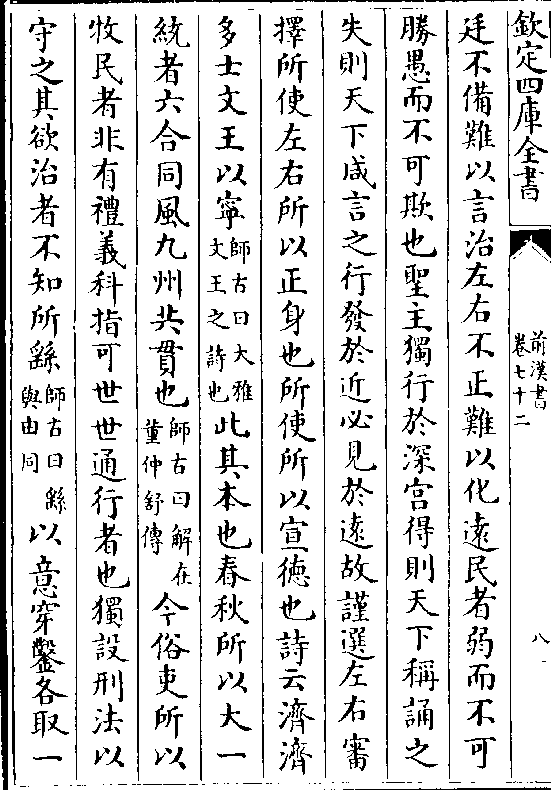 欽定四庫全書
前漢書
卷七十二
八
廷不備難以言治左右不正難以化遠民者弱而不可
勝愚而不可欺也聖主獨行於深宫得則天下稱誦之
失則天下咸言之行發於近必見於遠故謹選左右審
擇所使左右所以正身也所使所以宣德也詩云濟濟
多士文王以寧師古曰大雅文王之詩也此其本也春秋所以大一
統者六合同風九州共貫也師古曰解在董仲舒傳今俗吏所以
牧民者非有禮義科指可世世通行者也獨設刑法以
守之其欲治者不知所繇師古曰繇與由同以意穿鑿各取一